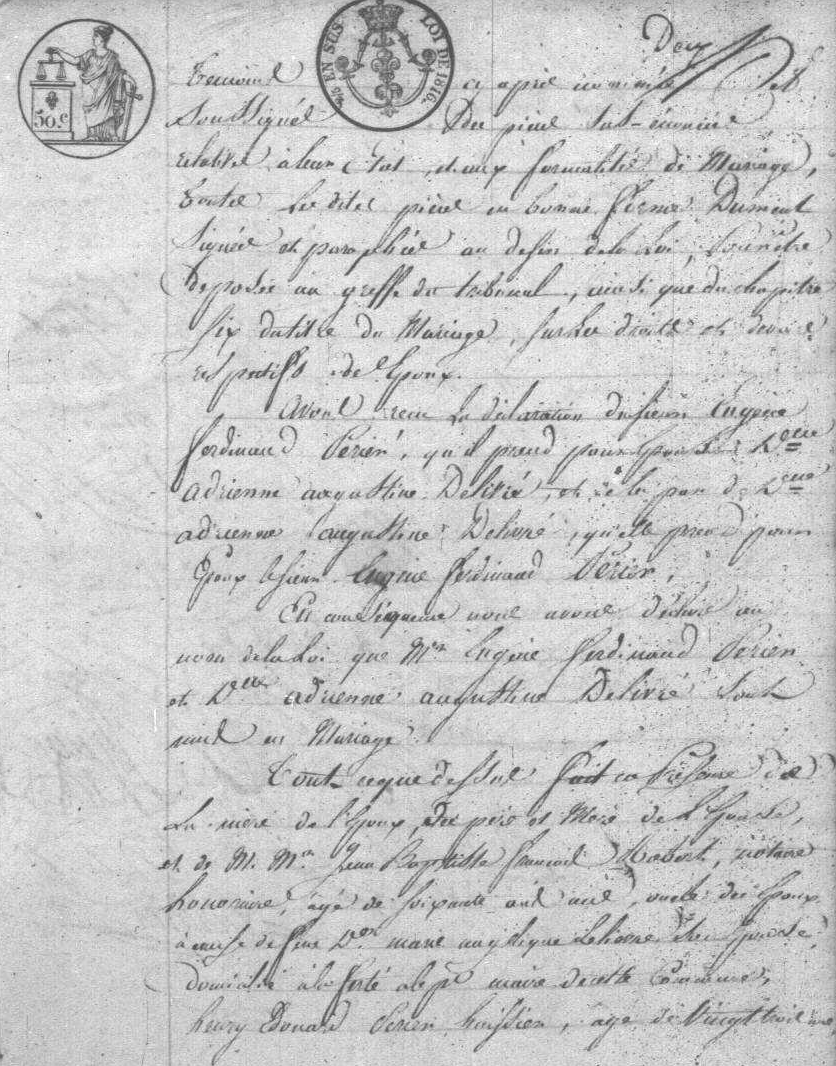 50.c
EN SUS LOI DE 1816.
Deux
temoins ci après nommés et
soussignés Des pièces sus-énoncées
relatives à leur état, et aux formalités de Mariage,
toutes lesdites pièces en bonne forme Dument
signées et paraphées au desir de la Loi, Pour être
deposées au greffe du tribunal, ainsi que du chapitre
six du titre du Mariage, sur les droits et devoirs
respectifs des Epoux.
Avons reçu la déclaration du sieur Eugène
ferdinand Perier, qu'il prend pour Epouse Delle
adrienne augustine Delivré, et de la part de Delle
adrienne augustine Delivré, qu'elle prend pour
Epoux le sieur Eugène ferdinand Perier,
En conséquence nous avons déclaré au
nom de la Loi que Mr Eugène ferdinand Perier
et Delle adrienne augustine Delivré sont
unis en Mariage
Tout ce que dessus fait en Présence de
La mère de l'Epoux, Des père et Mère de l'Epouse,
et de M. Me Jean Baptiste francois notaire
honoraire, agé de soixante ans, oncle des Epoux
à cause de feue De marie angelique son Epouse,
domicilié à la ferté maire de cette Commune,
henry Edouard Perier huissier, agé de Vingt trois ans